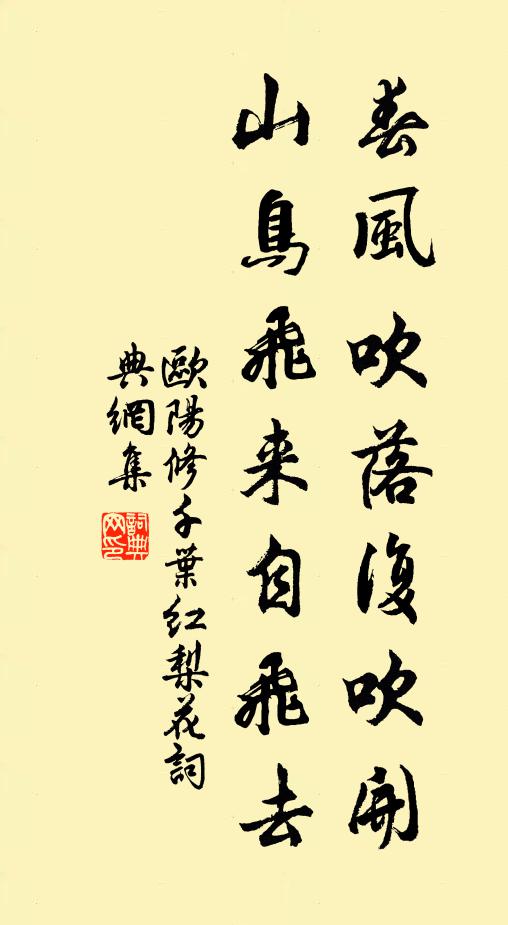 春風吹落復吹開
山鳥飛来自飛去
歐陽修千葉紅梨花詞
典網集
詞典
网印